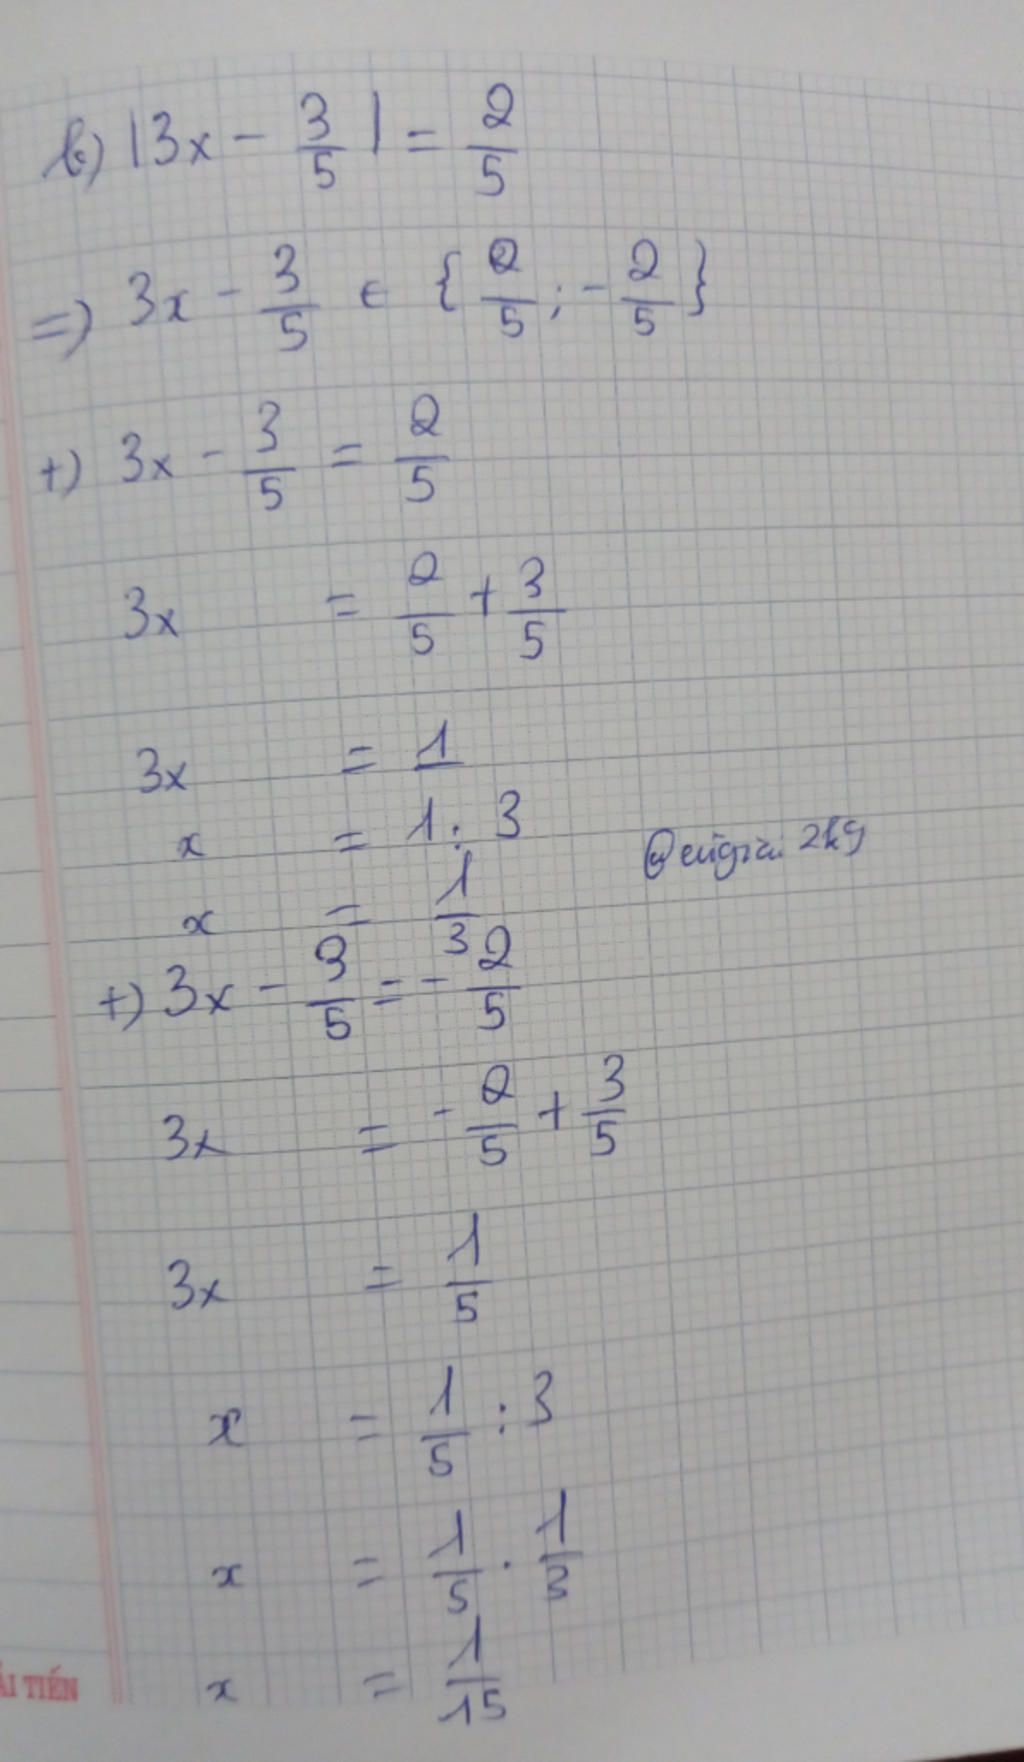 b) |3x - 3/5| = 2/5
=> 3x - 3/5 ∈ {2/5 ; - 2/5}
+) 3x - 3/5 = 2/5
3x = 2/5 + 3/5
3x = 1
x = 1 : 3
x = 1/3
+) 3x - 3/5 = - 2/5
3x = - 2/5 + 3/5
3x = 1/5
x = 1/5 : 3
x = 1/5 . 1/3
x = 1/15
ẢI TIẾN